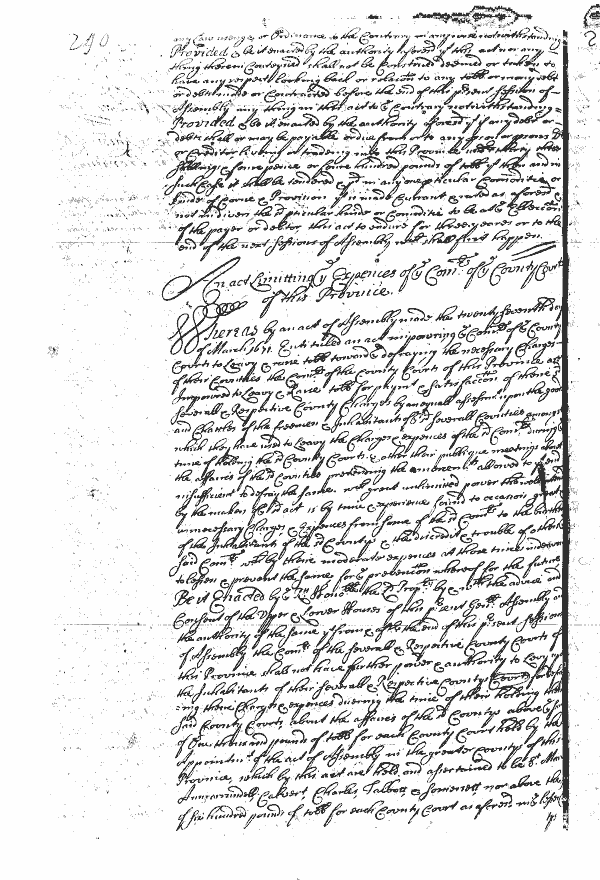 290
any Law usage or Ordinance to the Contrary in any wise notwithstanding
Provided & be it enacted by the authority aforesd yt this act nor any
thing therein Conteyned shall not be Construed deemed or taken to
have any respect looking back or relacon to any tobb or mony debt
or debts made or Contracted before the end of this present Session of
Assembly any thing in this act to ye Contrary notwithstanding
Provided & be it enacted by the authority aforesd yt if any debt or
debts shall or may be payable or due from or to any prson or prsons
or Creditor liveing or tradeing into this Province
of tobb
such Case it shall be tendered in any one pticular Comoditie or
kinde of Corne & Provision made Currant & rated as aforesd &
not undr given the sd pticular kinde or Comoditie to be att ye Eleccon
of the payer or debtor, this act to endure for three yeares or to the
end of the next Sessions of Assembly wch shall first happen
An act Limitting ye Expences of ye Comrs of ye County Courts
of this Province.
Whereas by an act of Assembly made the twenty seventh day
of March 1671. Entituled an act impowring ye Comrs of ye County
Courts to Leavy & raise tobb towards defraying the necessary Charges
of their Counties the Comrs of the County Courts of this Province are
Impowred to Leavy & Raise tobb for paymt & satisfaccon of their
severall & Respective County Charges by an equall assessmt upon the goods
and Chattles of the freemen & Inhabitants of ye sd severall Counties
which they have used to Leavy the Charges & expences of the sd Comrs during
time of holding the sd County Courts & other their publique meetings about
the affaires of the sd Counties pretending the amercemts allowed to
insufficient to defray the same, wch great unlimited power
by the makers of ye sd act is by time & experience found to occasion great
unnecessary Charges & Expences from some of the sd Comrs to the burthen
of the Inhabitants of the sd Countys & the evident trouble of others the
said Comrs who by their moderate expences at those times endeavor
to lessen & prevent the same for ye prevencon whereof for the future
Be it Enacted by ye Rt Honoble the Ld Propry by & wth the advice and
Consent of the Upper & Lower Houses of this prsent Genll Assembly and
the authority of the same yt from & after the end of this prsent Session
of Assembly the Comrs of the severall & Respective County Courts of
this Province shall not have further power & authority to Leavy upon
the Inhabitants of their severall & Respective Countys
their Charges & expences dureing the time of their holding the
said County Courts about the affaires of the sd Countys above ye sume
of One thousand pounds of tobb for each County Court held by the
appointmt of the act of Assembly in the greater Countys of this
Province, which by this act are held and ascertained to be St Maries
Annarundell, Calvert, Charles, Talbott, & Somersett nor above the
of six hundred pounds of tobb for each County Court as aforesd in ye lesser